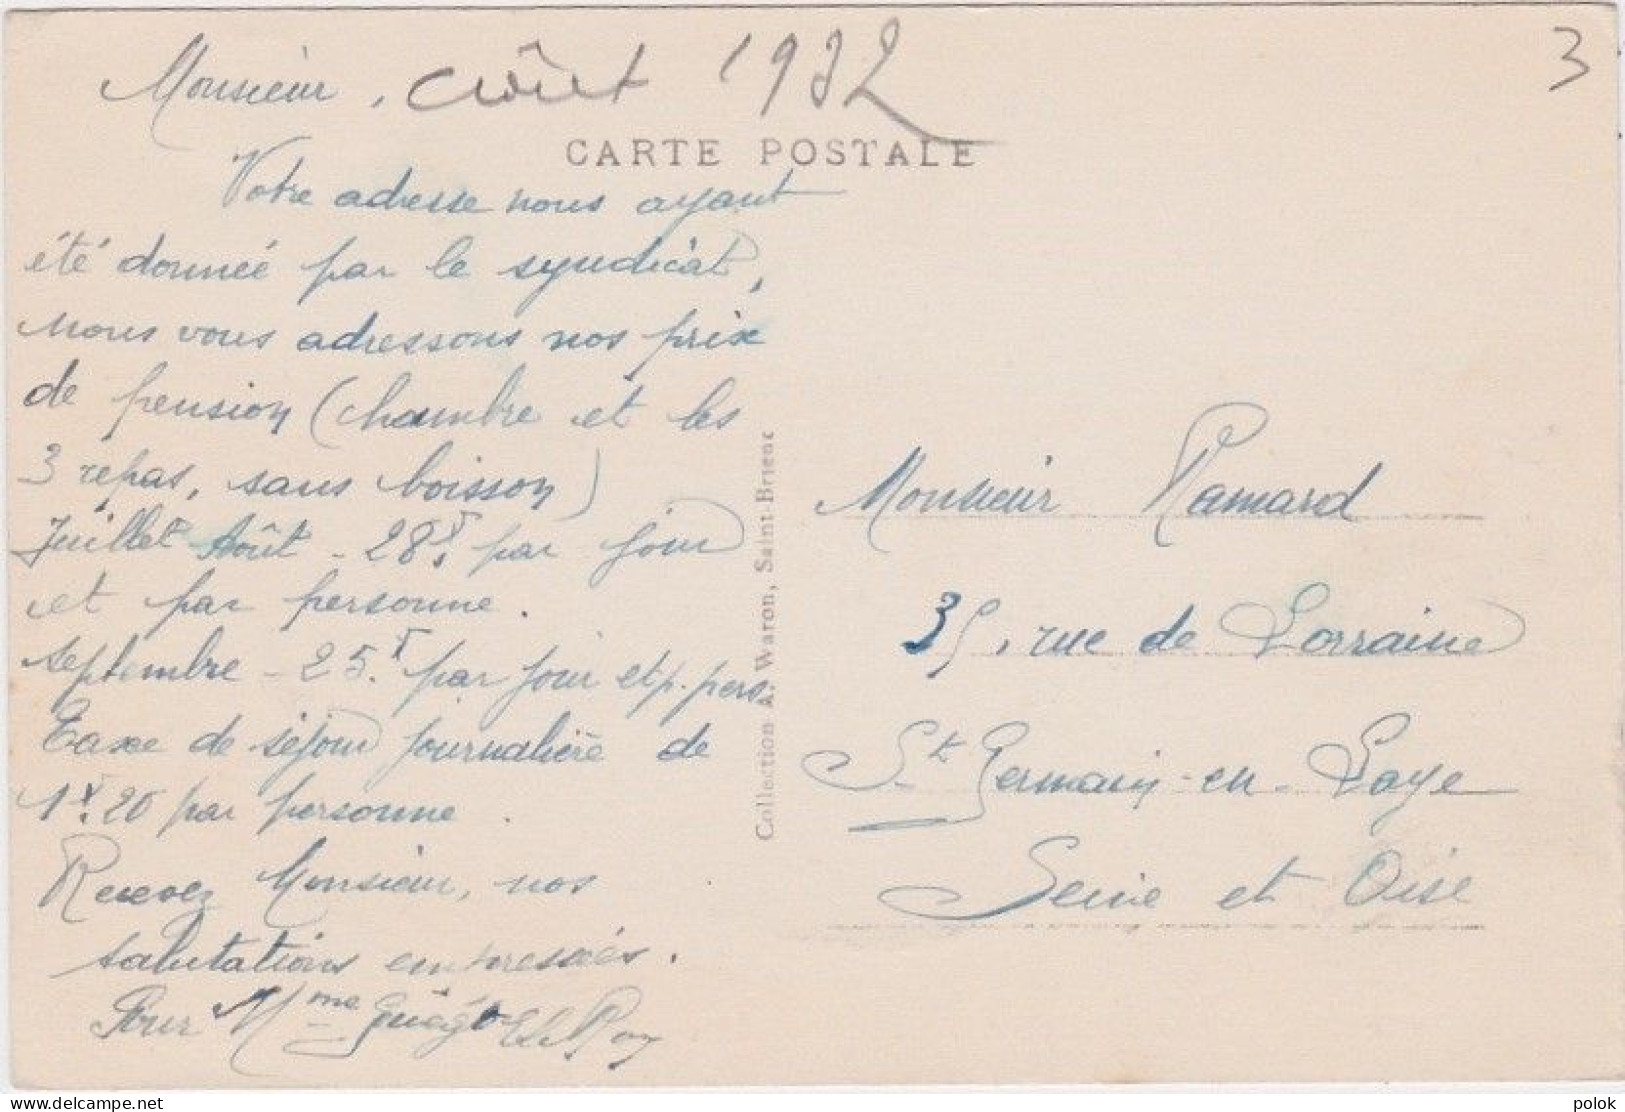 Monsieur,
août 1932
3
CARTE POSTALE
Votre adresse nous ayant
été donnée par le syndicat,
nous vous adressons nos prix
de pension (chambre et les
3 repas, sans boisson)
Juillet Août - 28f. par jour
et par personne.
Septembre - 25.f par jour et p. pers.
Taxe de séjour journalière de
1f.20 par personne.
Recevez Monsieur, nos
salutations empressées.
Pour Mme
Collection A. Waron, Saint-Brieuc
Monsieur Ramard
35, rue de Lorraine
St Germain-en-Laye
Seine et Oise
delcampe.net
polok